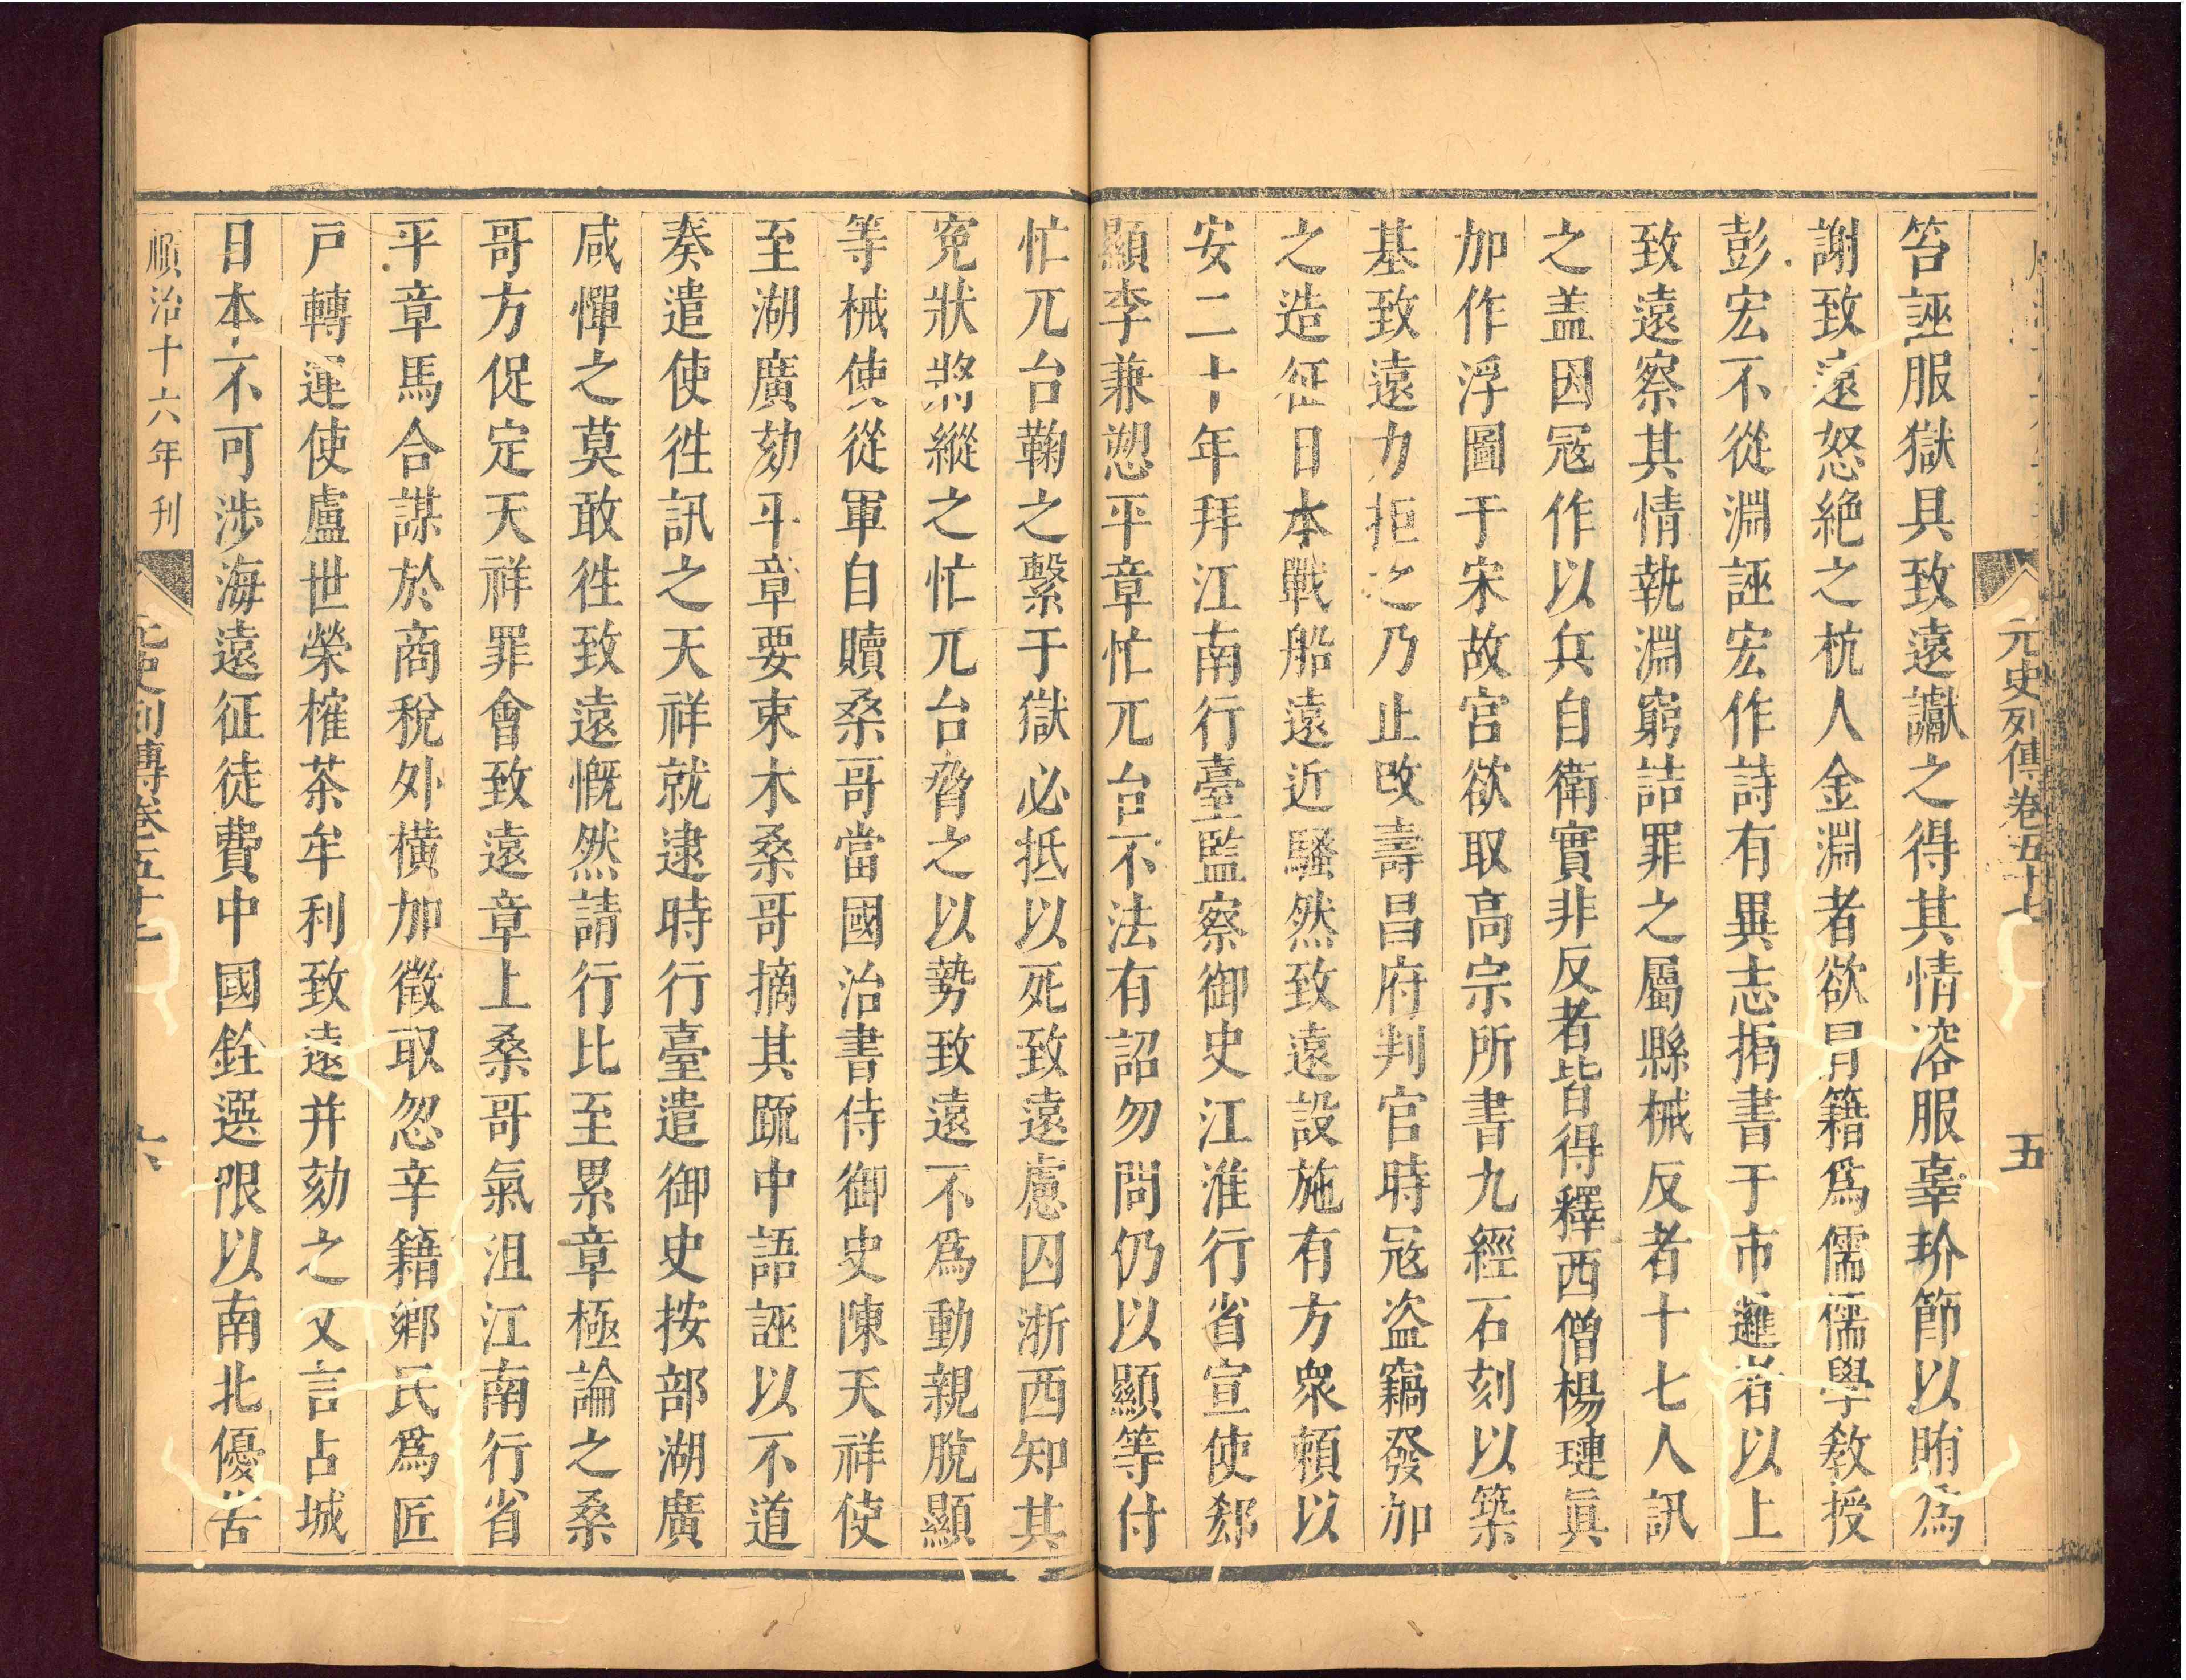 元史列傳卷五十七 五
笞誣服獄具致遠讞之得其情溶服辜玠節以賄爲
謝致遠怒絶之杭人金淵者欲冐籍爲儒儒學教授
彭宏不從淵誣宏作詩有異志揭書于市邏者以上
致遠察其情執淵窮詰罪之屬縣械反者十七人訊
之盖因冦作以兵自衛實非反者皆得釋西僧楊璉眞
加作浮圖于宋故宮欲取高宗所書九經石刻以築
基致遠力拒之乃止改壽昌府判官時冦盗竊發加
之造征日本戰船遠近騷然致遠設施有方衆賴以
安二十年拜江南行臺監察御史江淮行省宣使郄
顯李兼愬平章忙兀台不法有詔勿問仍以顯等付
忙兀台鞠之繫于獄必抵以死致遠慮囚浙西知其
寃狀將縱之忙兀台脅之以勢致遠不爲動親脫顯
等械使從軍自贖桑哥當國治書侍御史陳天祥使
至湖廣劾平章要束木桑哥摘其䟽中語誣以不道
奏遣使徃訊之天祥就逮時行臺遣御史按部湖廣
咸憚之莫敢徃致遠慨然請行比至累章極論之桑
哥方促定天祥罪會致遠章上桑哥氣沮江南行省
平章馬合謀於商稅外橫加徵取忽辛籍鄉民爲匠
戸轉運使盧世榮榷茶牟利致遠并劾之又言占城
日本不可涉海遠征徒費中國銓選限以南北優苦
順治十六年刊 元史列傳卷五十七 六